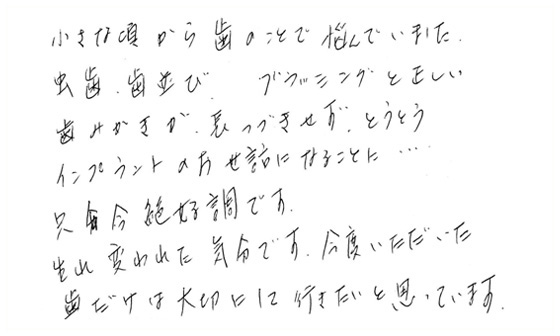 小さな頃から歯のことで悩んでいました.
虫歯.歯並び. ブラッシングと正しい
歯みがきが.長つづきせず.とうとう
インプラントのお世話になることに…
只今絶好調です.
生れ変われた気分です.今度いただいた
歯だけは大切にして行きたいと思っています.